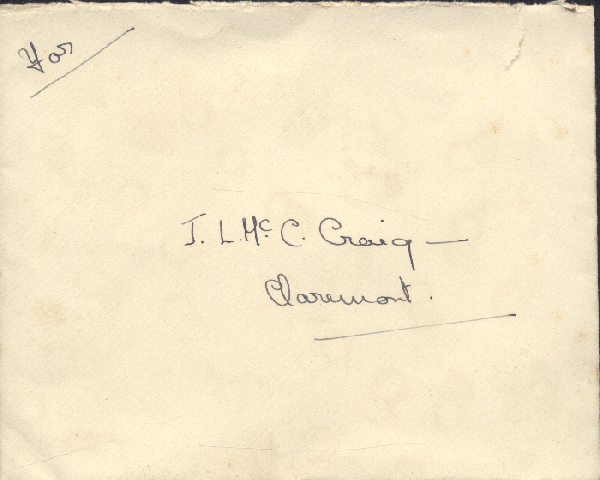 For
J. L. McC. Craig —
Claremont.